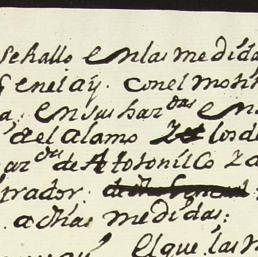 se hallo en las medida
q̃ en el aỹ. con el moti
a; en sus har.das en
del alamo los de
ar.das de Atotonilco
trador.
a d̃has medidas;
El que las m